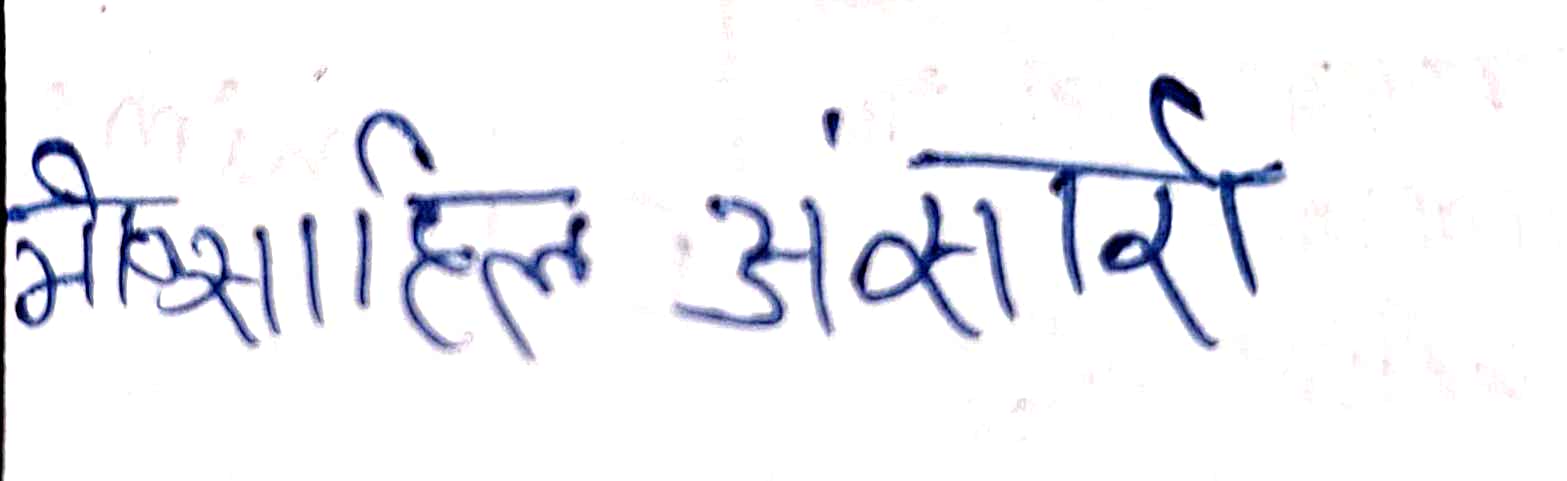 मो० साहिल अंसारी